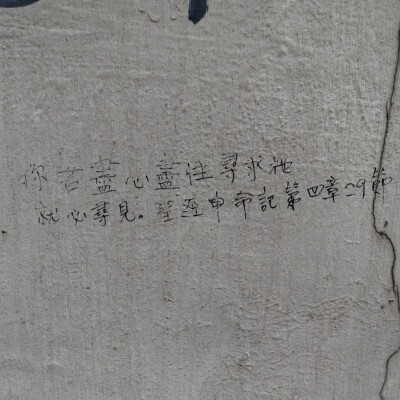 你若盡心盡性尋求祂
就必尋見。聖經申命記第四章29節